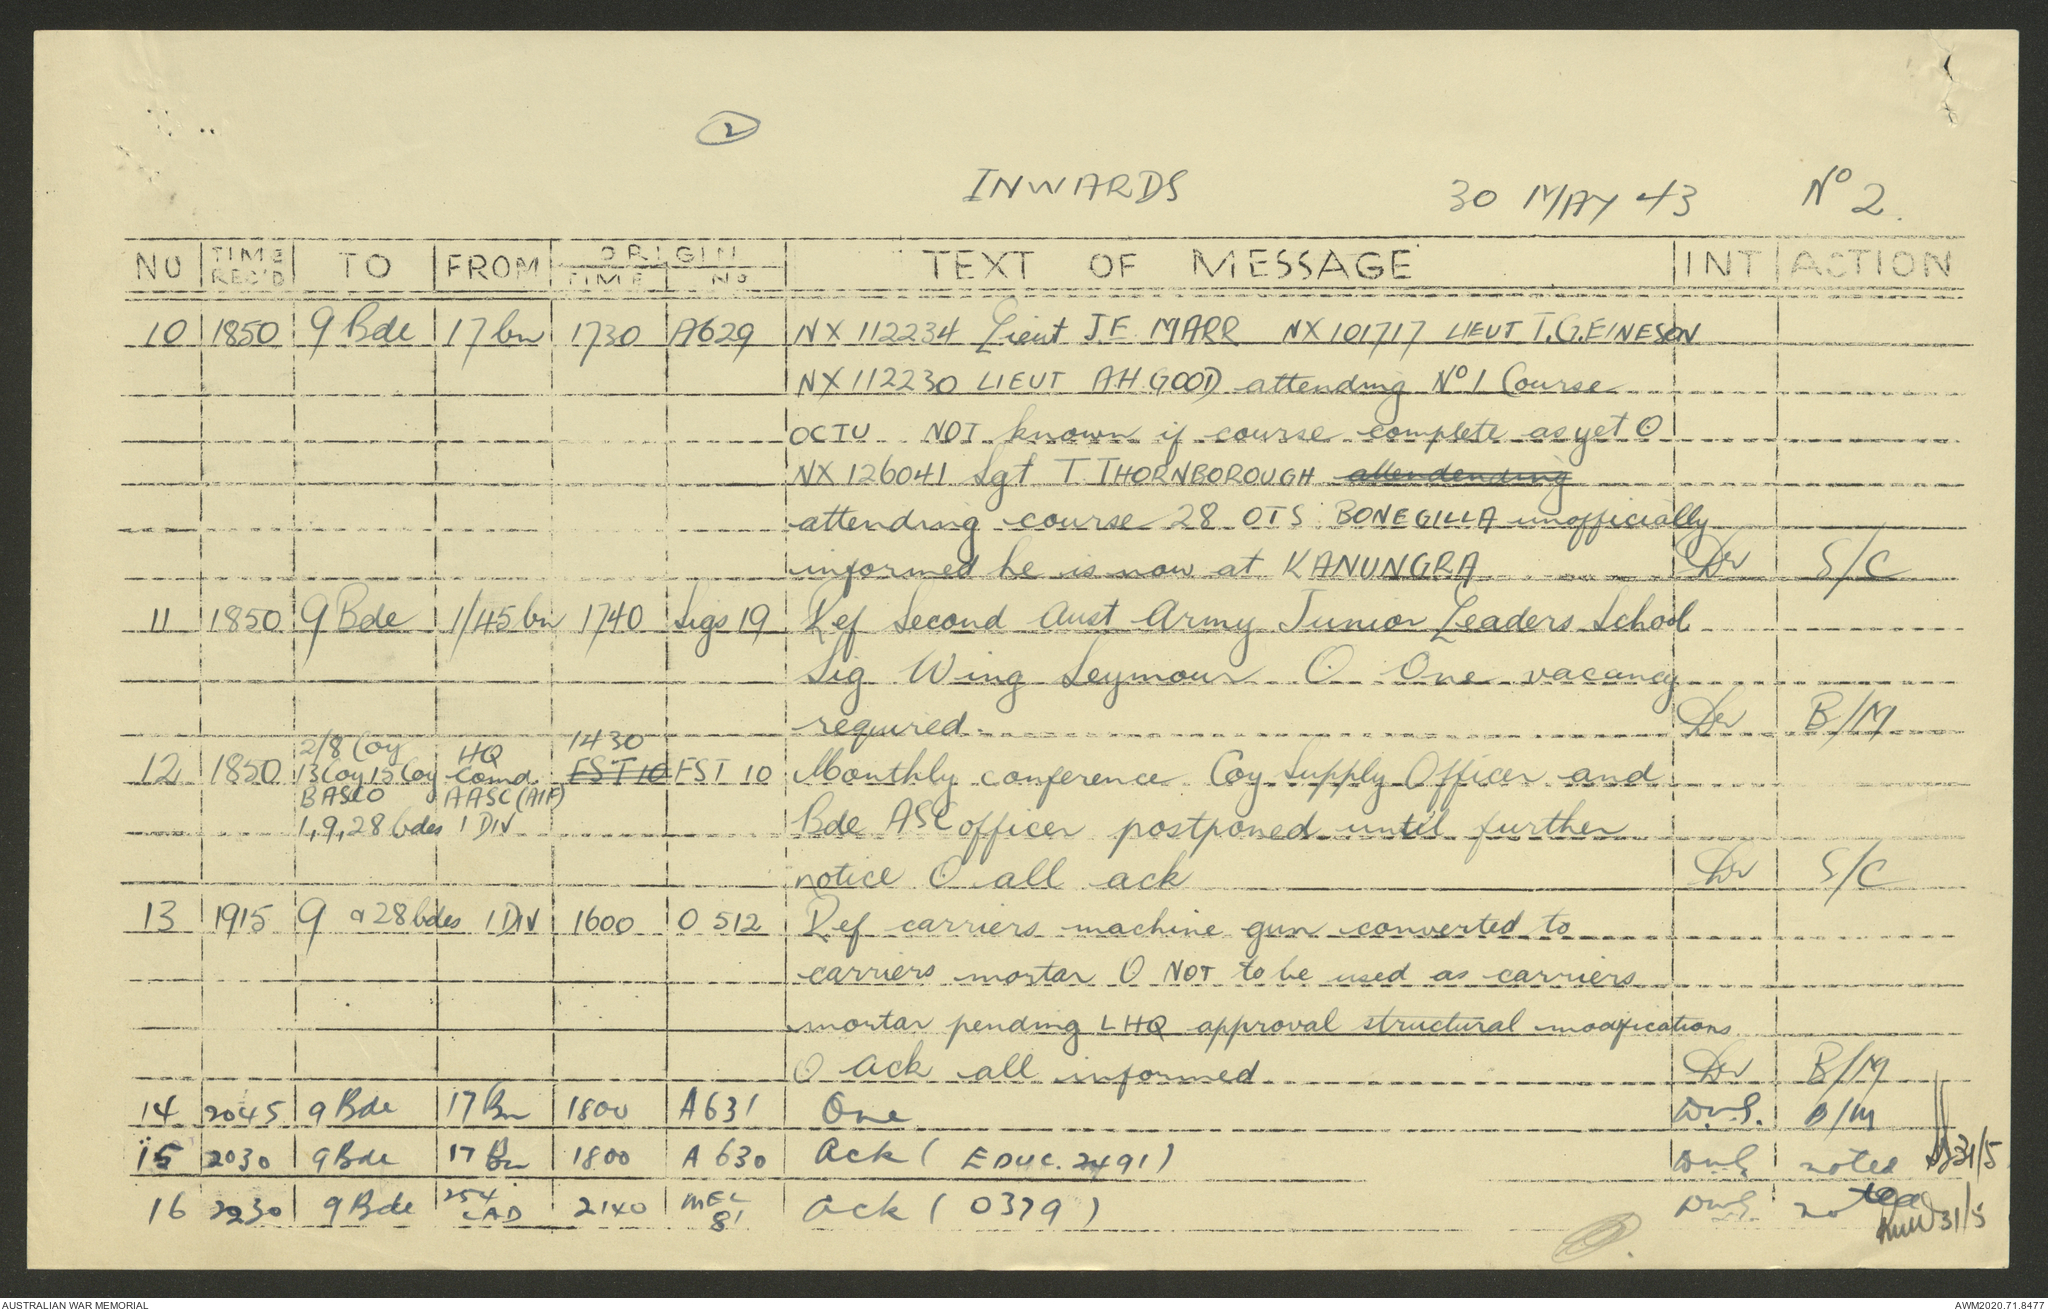 2
INWARDS 30 MAY 43 No 2.
NO TIME REC'D TO FROM ORIGIN TIME NO TEXT OF MESSAGE INT ACTION
10 1850 9 Bde 17 bn 1730 A629 NX 112234 Lieut J.E MARR NX 101717 LIEUT T.G.EINESON
NX 112230 LIEUT A.H. GOOD attending No 1 Course
OCTU NOT known if course complete as yet O
NX 126041 Sgt T THORNBOROUGH attendending
attending course 28 OTS BONEGILLA unofficially
informed he is now at KANUNGRA S/C
11 1850 9 Bde 1/45 bn 1740 Sigs 19 Ref Second Aust Army Junior Leaders School
Sig Wing Seymour O One vacancy
required B/M
12 1850 2/8 Coy 13 Coy 15 Coy BASCO 1, 9, 28 bdes HQ Comd AASC (AIF) 1 DIV 1430 FST 10 FST 10 Monthly conference Coy Supply Officer and
Bde ASC officer postponed until further
notice O all ack S/C
13 1915 9 & 28 bdes 1 DIV 1600 O 512 Ref carriers machine gun converted to
carriers mortar O NOT to be used as carriers
mortar pending LHQ approval structural modifications
O Ack all informed B/M
14 2045 9 Bde 17 Bn 1800 A631 One B/M
15 2030 9 Bde 17 Bn 1800 A 630 Ack ( EDUC. 2491 ) noted 31/5
16 2230 9 Bde 254 LAD 2140 MEL 81 ack ( 0379 ) noted 31/5
AUSTRALIAN WAR MEMORIAL AWM2020.71.8477